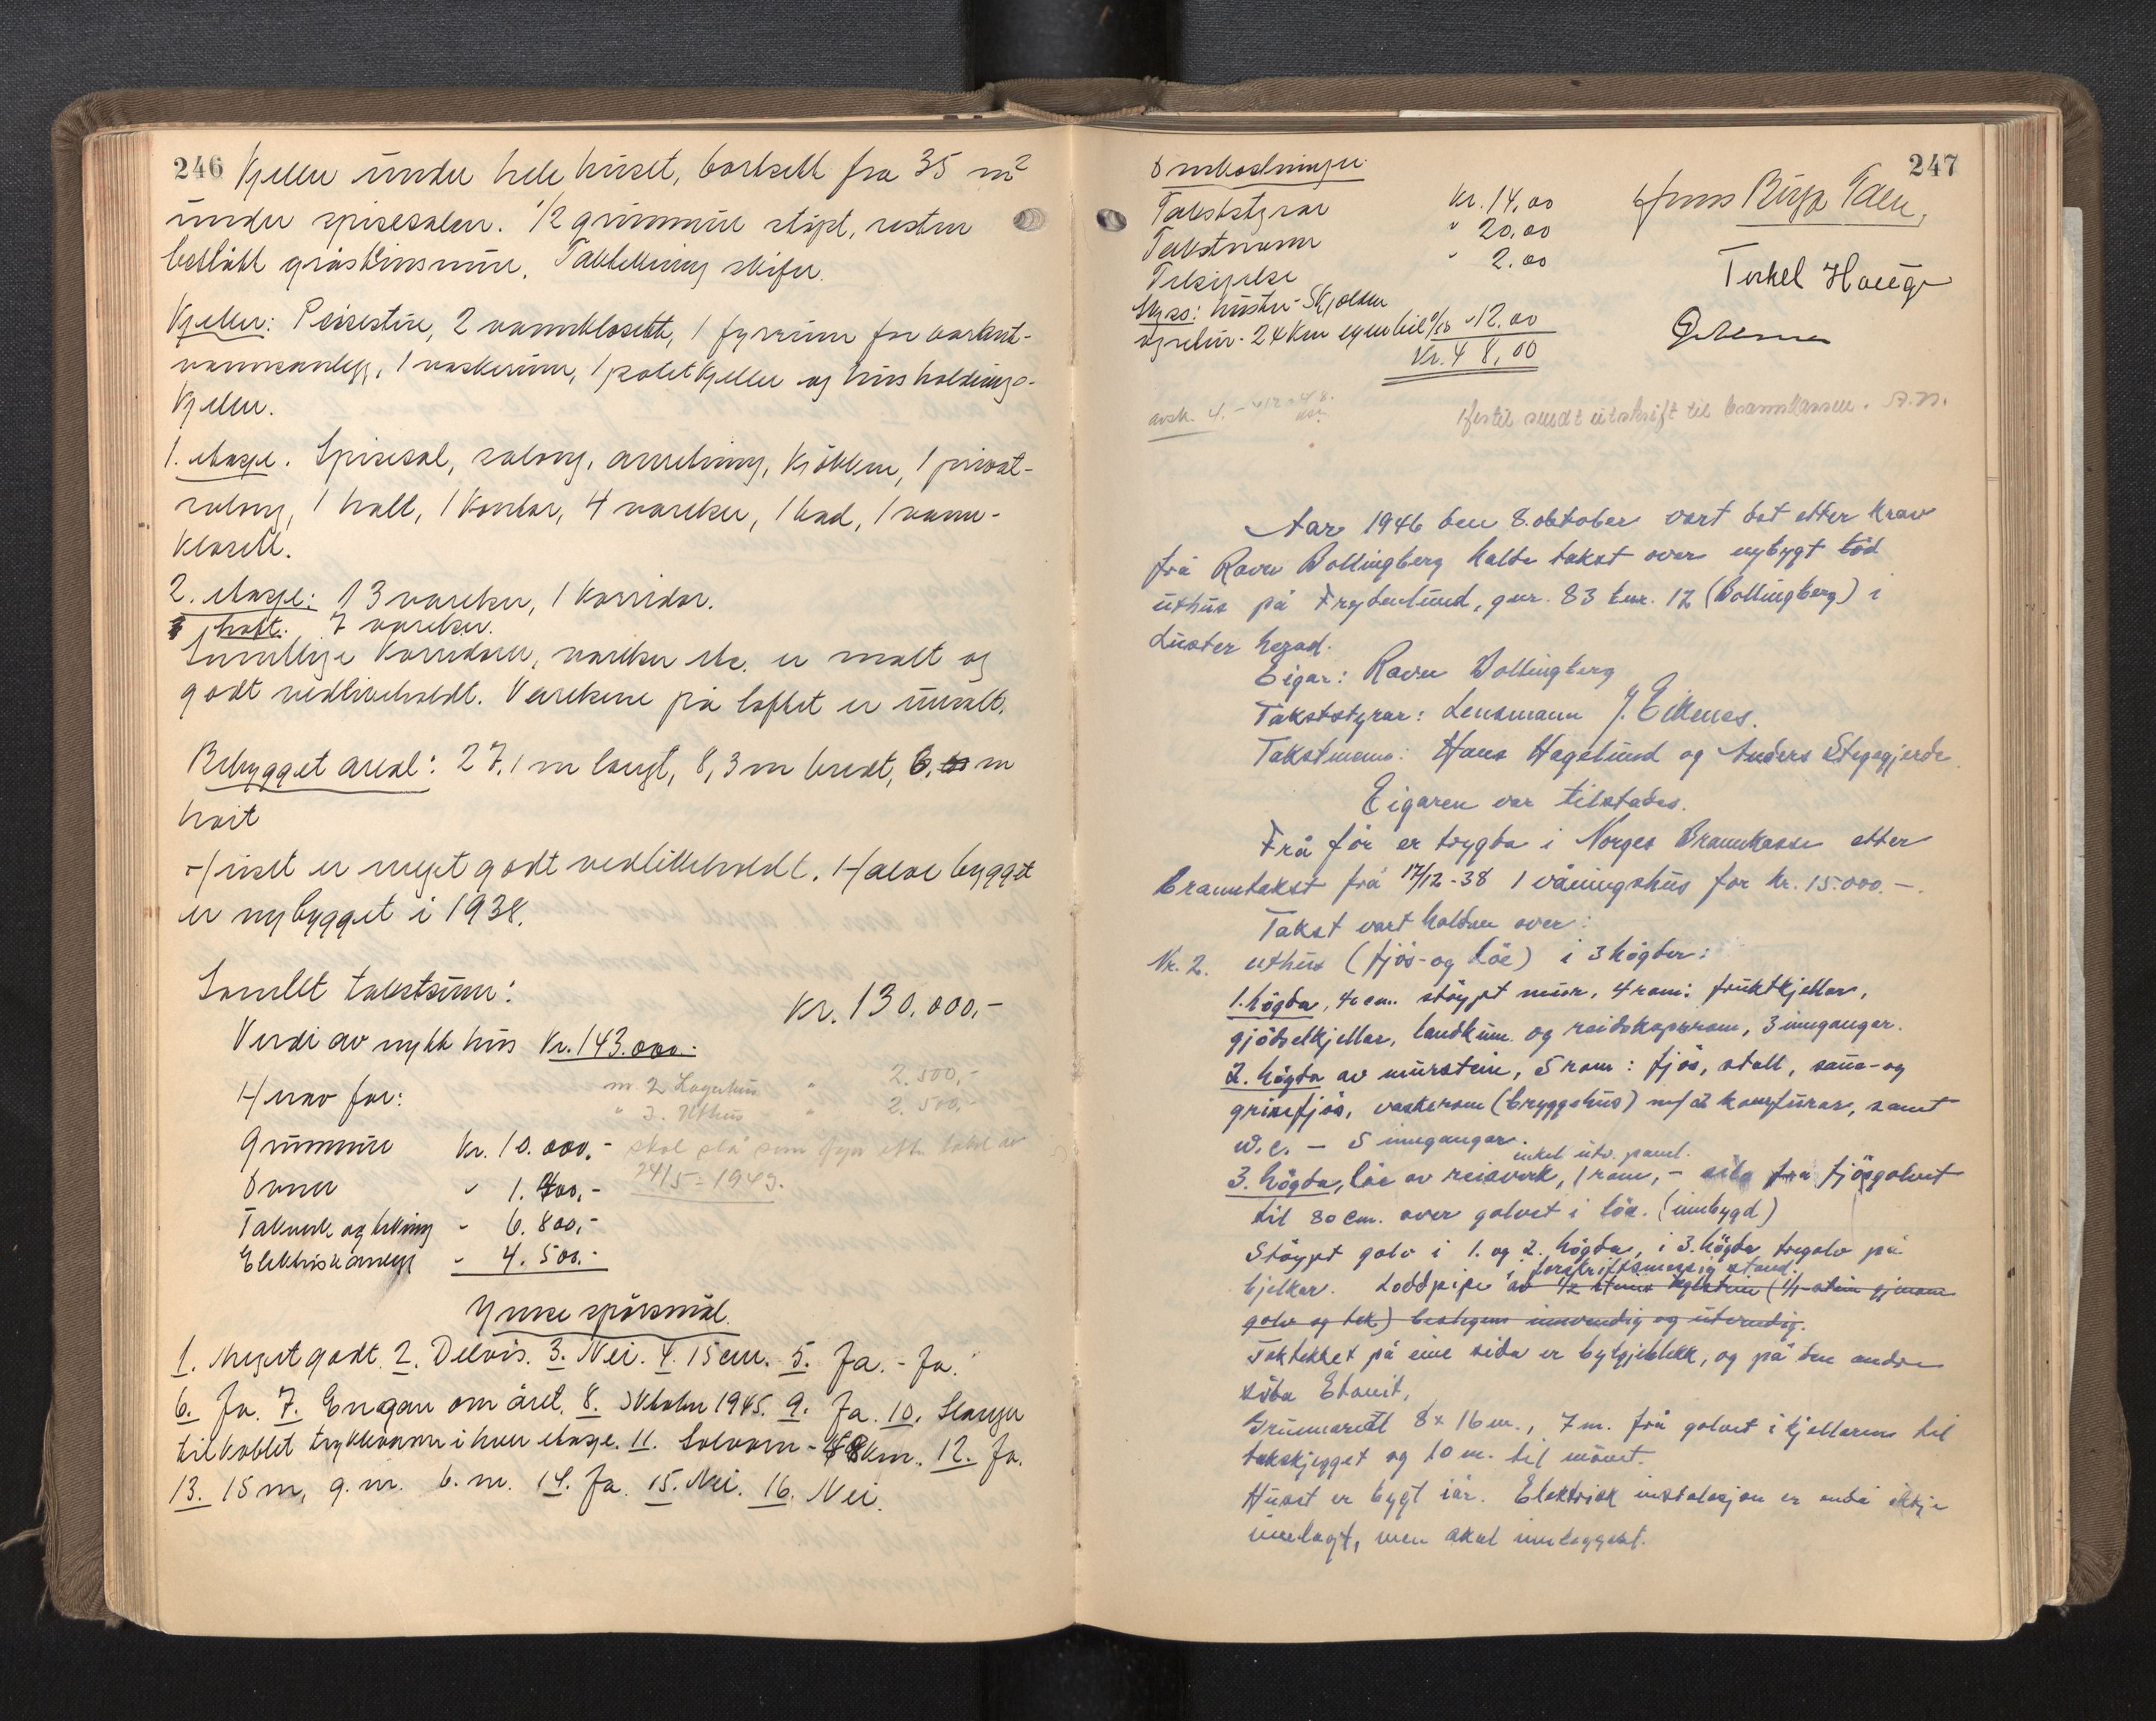 246 Kjeller under hele huset, bortsett fra 35 m2
under spisesalen. 1/2 grunnmur støpt, resten
gråsteinsmur. Taktekking skifer.
Kjeller: Peisestue, 2 vannklosett, 1 fyrrum for
vannsanlegg, 1 vaskerum, 1 potetkjeller og husholdnings-
kjeller.
1. etasje. Spisesal, salong, anretning, kjøkken, 1 privat-
salong, 1 hall, 1 kontor, 4 værelser, 1 bad, 1 vann-
klosett.
2. etasje: 13 værelser, 1 korridor.
loft. 7 værelser.
Samtlige korridorer, værelser etc. er malt og
godt vedlikeholdt. Værelsene på loftet er umalt.
Bebygget areal: 27,1 m langt, 8,3 m bredt, 6, m
høit
Huset er meget godt vedlikeholdt. Halve bygget
er nybygget i 1938.
Samlet takstsum: Kr. 130.000,-
Verdi av nytt hus Kr. 143.000.-
Herav for:
nr. 2 Lagerhus " 2.500,-
" 3. Uthus " 2.500,-
Grunnmur Kr. 10.000,- skal stå som før etter takst av
24/5-1943.
Ovner " 1.700,-
Takverk og tekking " 6.800,-
Elektrisk anlegg " 4.500.-
Ymse spørsmål.
1. Meget godt 2. Delvis. 3. Nei. 4. 15 cm. 5. Ja. - Ja.
6. Ja. 7. En gang om året. 8. Oktober 1945. 9. Ja. 10. Slanger
tilkoblet trykkvann i hver etasje. 11. Solvorn - 8 km. 12. Ja.
13. 15 m, 9. m. 6. m. 14. Ja. 15. Nei. 16. Nei.
247
Omkostninger
Takststyrar Kr. 14.00
Takstmenn " 20.00
Telsigelse " 2.00
Skyss: Luster - Skjolden
og retur - 24 km egen bil 0/50 " 12.00
Kr. 48,00
Torkel Hauge
sendt utskrift til brannkassen.
Aar 1946 den 8. oktober vart det etter krav
frå Raven Bollingberg halde takst over nybygt
uthus på Frydenlund, gnr. 83 bnr. 12 (Bollingberg) i
Luster herad.
Eigar: Raven Bollingberg
Takststyrar: Lensmann J. Eikenes.
Takstmenn: Hans Hagelund og Anders Stegegjerde.
Eigaren var tilstades.
Frå før er trygda i Norges Brannkasse etter
branntakst frå 17/12-38 1 våningshus for kr. 15.000.-.
Takst vart halden over:
Nr. 2. uthus (fjøs- og løe) i 3 høgder:
1. høgda, 40 cm. støypt mur, 4 rom: fruktkjellar,
gjødselkjellar, landkum og reidskapsrom, 3 inngangar.
2. høgda av murstein, 5 rom: fjøs, stall, saue- og
grisefjøs, vaskerom (bryggehus) m/2 komfurar, samt
w.c. - 5 inngangar.
enkel utv. panel.
3. høgda, løe av reisverk, 1 rom, - frå fjøsgolvet
til 80 cm. over golvet i løa. (innbygd)
Støypt golv i 1. og 2. høgda, i 3. høgda tregolv på
i forskriftsmessig stand.
bjelkar. Loddpipe av 1/2 steins teglstein (1/1-stein gjenom
golv og tek) innvendig og utvendig.
Taktekket på eine sida er bylgjeblekk, og på den andre
sida Etanit.
Grunnareal 8 x 16 m., 7 m. frå golvet i kjellaren til
takskjegget og 10 m. til mønet.
Huset er bygt iår. Elektrisk instalasjon er ikkje
innlagt, men skal innleggast.